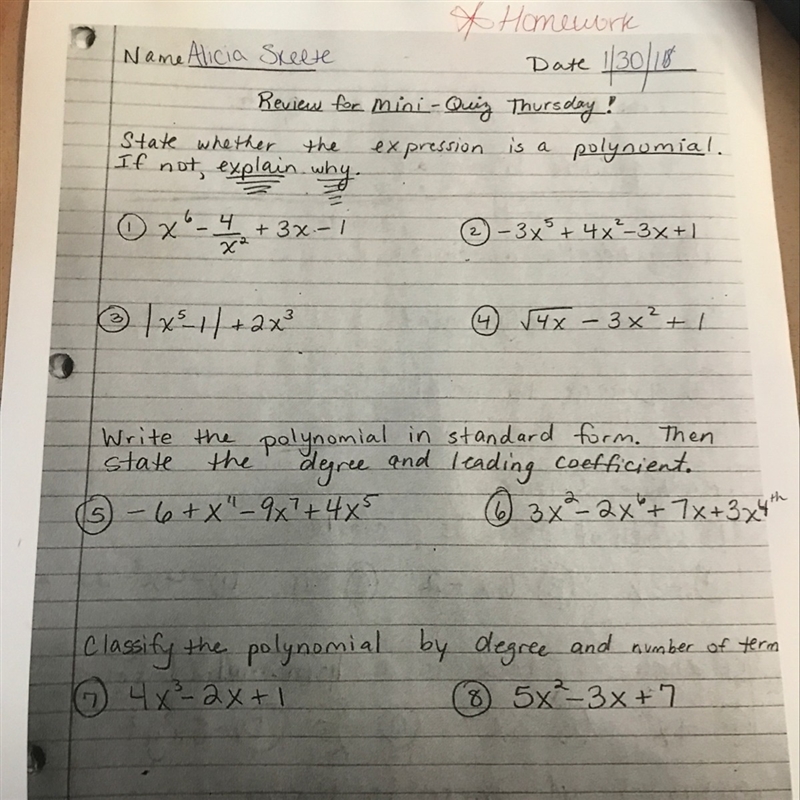 * Homework
Name Alicia Skeete Date 1/30/18
Review for Mini-Quiz Thursday!
State whether the expression is a polynomial.
If not, explain why.
① x⁶ - 4/x² + 3x - 1 ② -3x⁵ + 4x² - 3x + 1
③ |x⁵-1| + 2x³ ④ √4x - 3x² + 1
Write the polynomial in standard form. Then
state the degree and leading coefficient.
⑤ -6 + x⁴ - 9x⁷ + 4x⁵ ⑥ 3x² - 2x⁶ + 7x + 3x4ᵗʰ
Classify the polynomial by degree and number of term
⑦ 4x³ - 2x + 1 ⑧ 5x² - 3x + 7